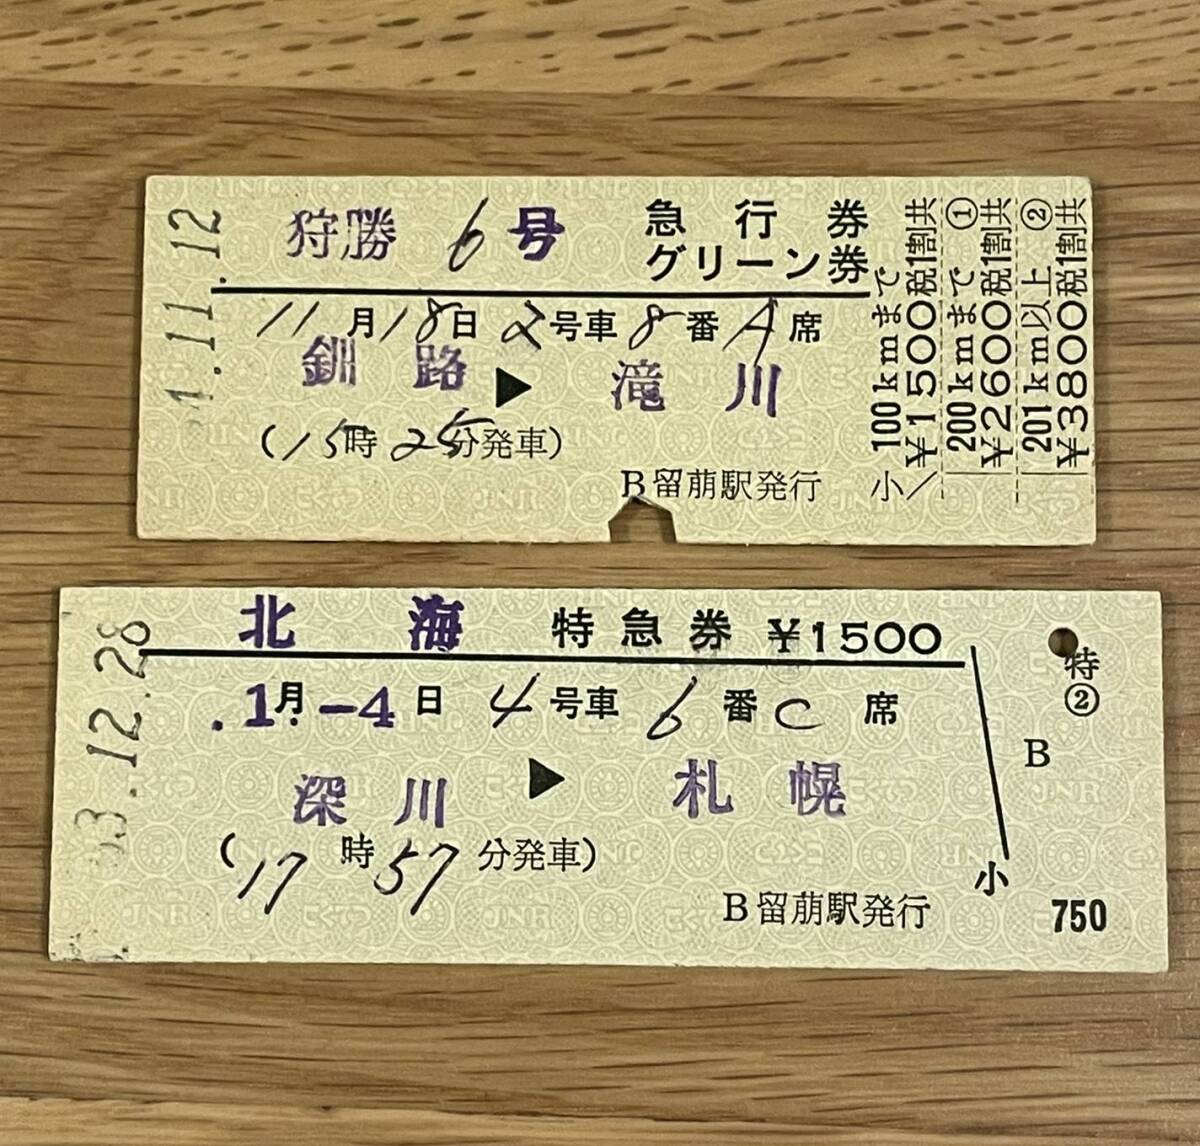 狩勝 6号 急行券
グリーン券
11月18日 2号車 8番 A席
釧路 ▶ 滝川
(15時25分発車)
B留萠駅発行
1.11.12
100kmまで
¥1500税1割共
200kmまで ①
¥2600税1割共
201km以上 ②
¥3800税1割共
小
北海 特急券 ¥1500
.1月.-4日 4号車 6番 C席
深川 ▶ 札幌
(17時57分発車)
B留萠駅発行
53.12.28
特②
B
小
750